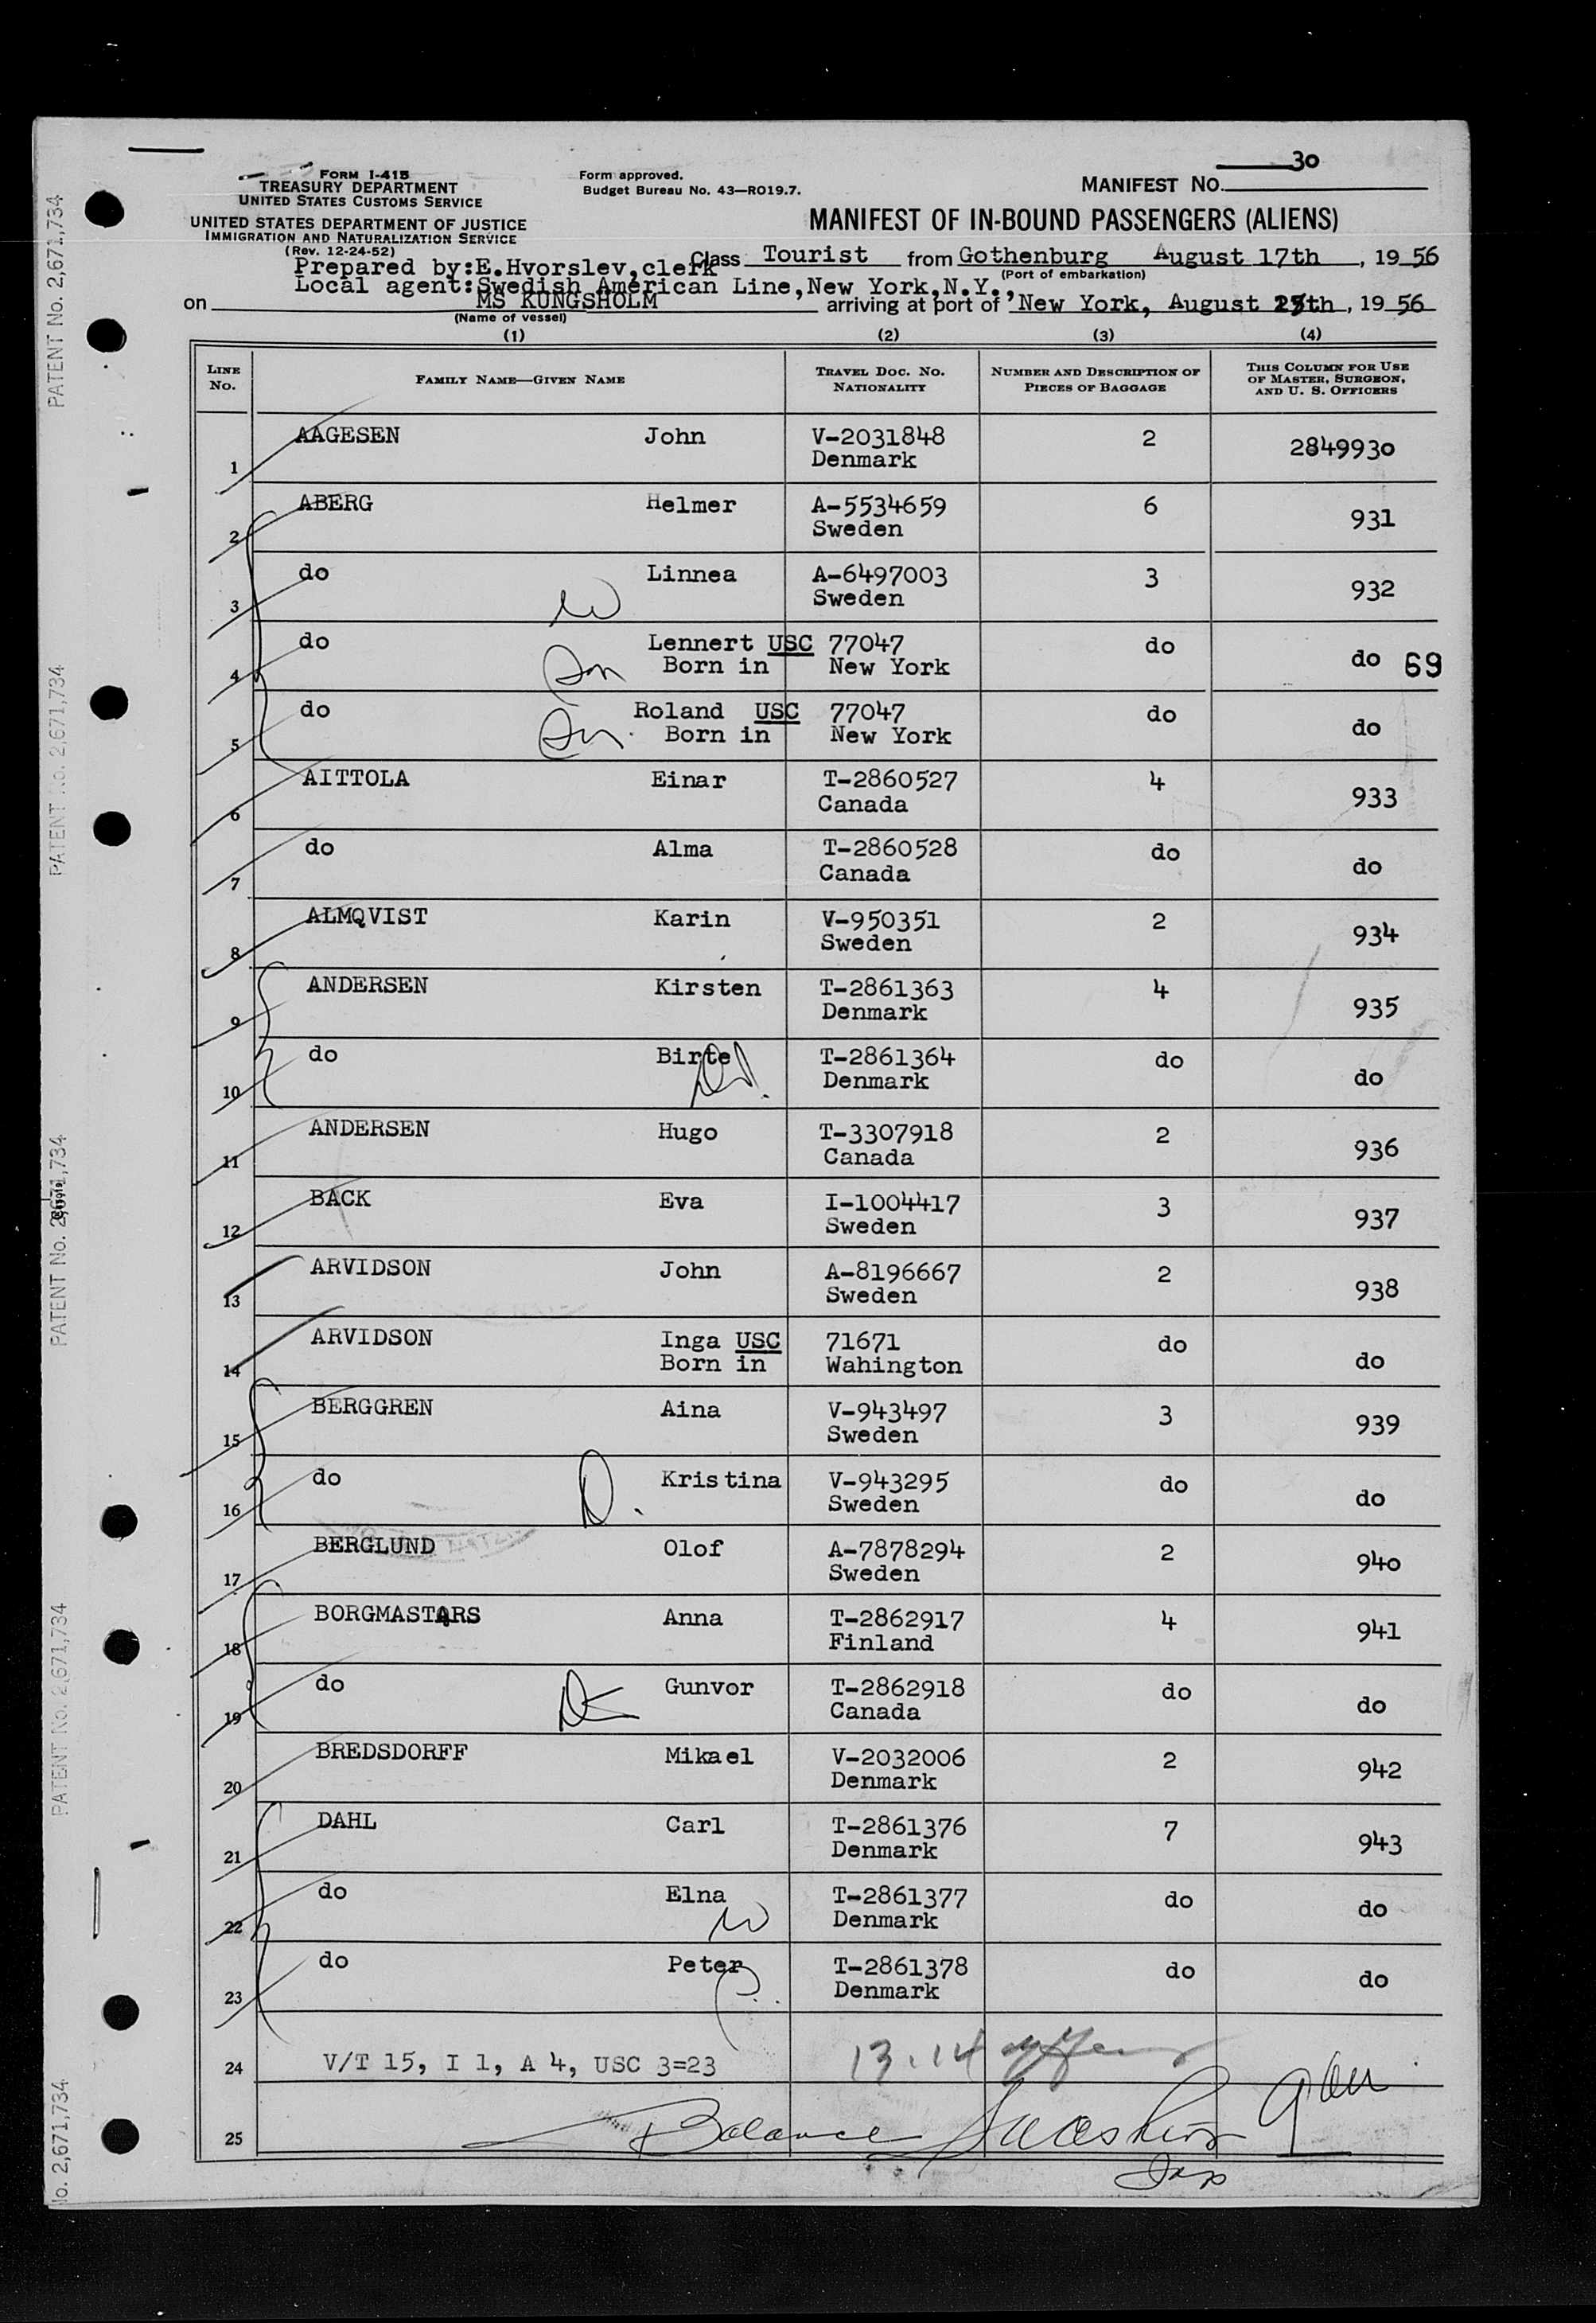 30
FORM I-415
TREASURY DEPARTMENT
UNITED STATES CUSTOMS SERVICE
UNITED STATES DEPARTMENT OF JUSTICE
IMMIGRATION AND NATURALIZATION SERVICE
(Rev. 12-24-52)
Form approved.
Budget Bureau No. 43—RO19.7.
MANIFEST No.
MANIFEST OF IN-BOUND PASSENGERS (ALIENS)
Class Tourist from Gothenburg August 17th, 19 56
(Port of embarkation)
Prepared by:E.Hvorslev,clerk
Local agent:Swedish American Line,New York,N.Y.,
on MS KUNGSHOLM arriving at port of New York, August 25th, 19 56
(Name of vessel)
(1) (2) (3) (4)
LINE No. FAMILY NAME—GIVEN NAME TRAVEL DOC. No. NATIONALITY NUMBER AND DESCRIPTION OF PIECES OF BAGGAGE THIS COLUMN FOR USE OF MASTER, SURGEON, AND U. S. OFFICERS
1 AAGESEN John V-2031848 2 2849930
Denmark
2 ABERG Helmer A-5534659 6 931
Sweden
3 do Linnea A-6497003 3 932
W Sweden
4 do Lennert USC 77047 do do 69
Son Born in New York
5 do Roland USC 77047 do do
Son Born in New York
6 AITTOLA Einar T-2860527 4 933
Canada
7 do Alma T-2860528 do do
Canada
8 ALMQVIST Karin V-950351 2 934
Sweden
9 ANDERSEN Kirsten T-2861363 4 935
Denmark
10 do Birte T-2861364 do do
Denmark
11 ANDERSEN Hugo T-3307918 2 936
Canada
12 BACK Eva I-1004417 3 937
Sweden
13 ARVIDSON John A-8196667 2 938
Sweden
14 ARVIDSON Inga USC 71671 do do
Born in Wahington
15 BERGGREN Aina V-943497 3 939
Sweden
16 do Kristina V-943295 do do
D. Sweden
17 BERGLUND Olof A-7878294 2 940
Sweden
18 BORGMASTARS Anna T-2862917 4 941
Finland
19 do Gunvor T-2862918 do do
Canada
20 BREDSDORFF Mikael V-2032006 2 942
Denmark
21 DAHL Carl T-2861376 7 943
Denmark
22 do Elna T-2861377 do do
W Denmark
23 do Peter T-2861378 do do
Denmark
24 V/T 15, I 1, A 4, USC 3=23 13.14
25 Balance
Ins
PATENT No. 2,671,734
PATENT No. 2,671,734
PATENT No. 2,671,734
PATENT No. 2,671,734
No. 2,671,734